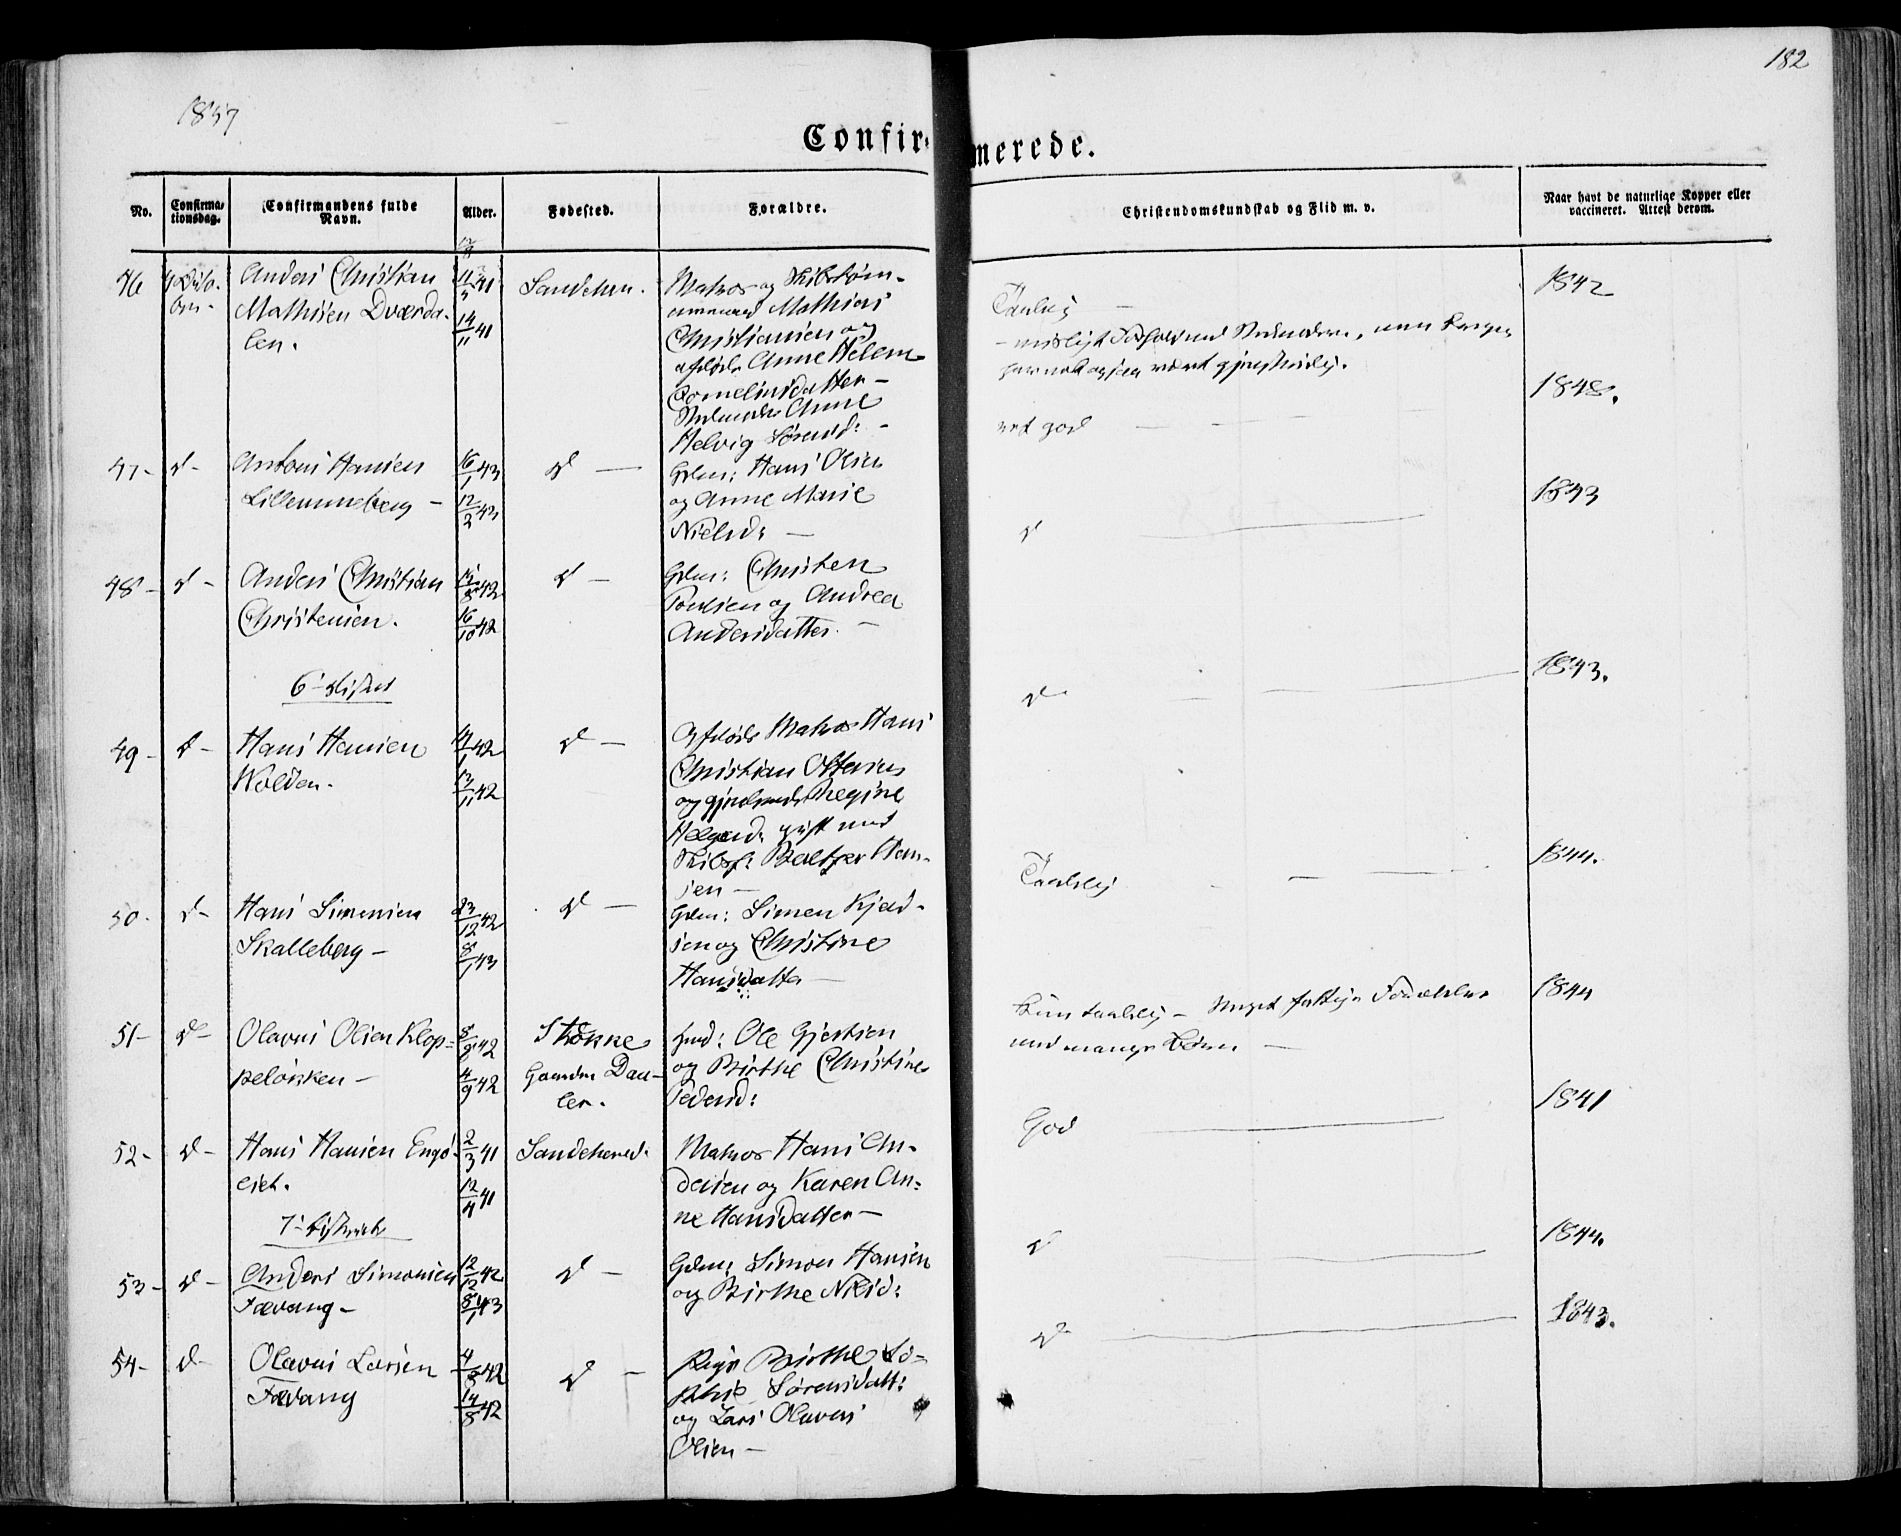 182
1857
Confirmerede.
No.
Confirma-
tionsdag.
Confirmandens fulde
Navn.
Alder.
Fødested.
Forældre.
Christendomskundskab og Flid m. v.
Naar havt de naturlige Kopper eller
vaccineret. Attest derom.
46
4 Octo-
ber
Anders Christian
Mathisen Dværda-
len.
11/5 41
14/11 41
Sandeherr.
Matros og Skibstøm-
mermand Mathias
Christiansen og
afdøde Anne Helene
Cornelius datter -
Stedmoder Anne
Helvig Sørensd: -
Taalelig
- misligt Forhold med Stedmoderen, men Drengen
1842
47 -
d -
Antoni Hansen
Lillemuneberg -
16/1 43
12/2 43
d -
Gdm: Hans Olsen
og Anne Marie
Nielsd: -
ret god
1848.
48 -
d -
Anders Christian
Christensen.
15/8 42
16/10 42
d -
Gdm: Christen
Paulsen og Andrea
Andersdatter. -
d
1843
6 - District
49 -
d -
Hans Hansen
Wolden.
4/1 42
13/11 42
d -
Afdøde Matros Hans
Christian Ottersen
og gjenlevende Regine
Helgesd: gift med
Skibsf: Baltzer Han-
sen -
d
1843.
50 -
d -
Hans Simensen
Skalleberg -
23/12 42
8/1 43
d -
Gdm: Simen Kjeld-
sen og Christine
Hansdatter -
Taalelig
1844.
51 -
d -
Olavus Olsen Klop-
peløkken -
8/9 42
4/9 42
Stokke
Gaarden Dau-
len.
husd: Ole Gjertsen
og Birthe Christine
Pedersd:
kun taalelig - Meget fattige Forældre
med mange Børn -
1844
52 -
d -
Hans Hansen Engø-
eiet.
2/3 41
12/4 41
Sandeherred.
Matros Hans An-
dersen og Karen An-
ne Hansdatter -
God
1841
7 - District
53 -
d -
Anders Simonsen
Fævang -
12/12 42
8/1 43
d -
Gdm: Simon Hansen
og Birthe Nilsd:
d
1844.
54 -
d -
Olavus Larsen
Fævang
4/8 42
14/8 42
d -
Pige Birthe So-
phie Sørensdatt:
og Lars Olaves
Olsen -
d
1843.